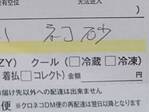 ネコ砂
ZY) クール(□冷蔵 □冷凍)
(□着払 □コレクト)金額 円
届け先以外への配達は出来ません
※クロネコDM便の再配達は翌日以降となります